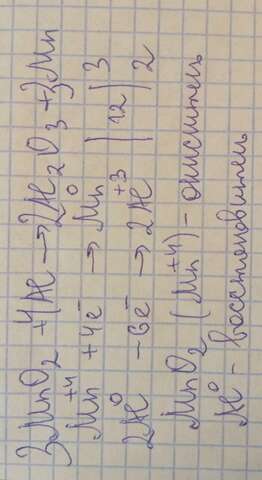 3MnO₂ + 4Al → 2Al₂O₃ + 3Mn
Mn⁺⁴ + 4e⁻ → Mn⁰ | 12 | 3
2Al⁰ - 6e⁻ → 2Al⁺³ | 2
MnO₂ (Mn⁺⁴) - окислитель
Al⁰ - восстановитель